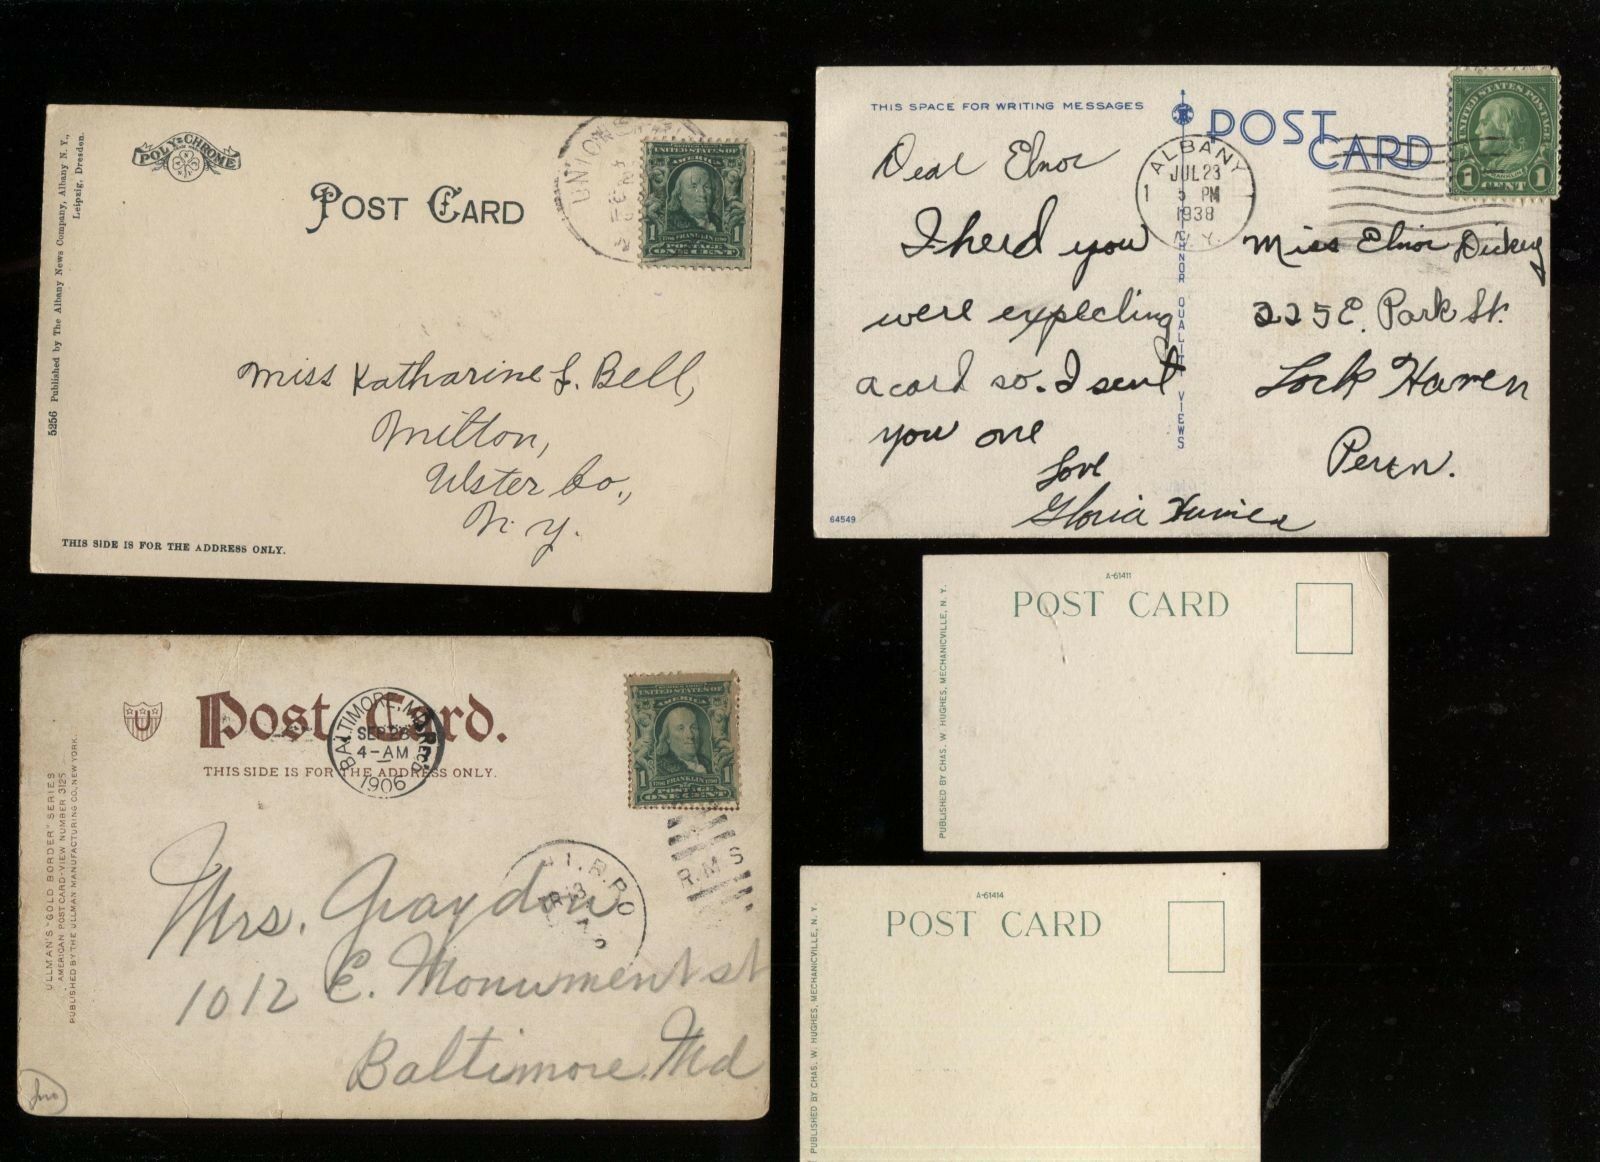 POLY-CHROME
POST CARD
5256 Published by The Albany News Company, Albany N. Y.,
Leipzig, Dresden.
UNION
UNITED STATES OF
AMERICA
1 1790 FRANKLIN 1790 1
POSTAGE
ONE CENT
Miss Katharine L. Bell,
Milton,
Ulster Co.,
N. Y.
THIS SIDE IS FOR THE ADDRESS ONLY.
THIS SPACE FOR WRITING MESSAGES
POST
CARD
UNITED STATES POSTAGE
FRANKLIN
1 CENT 1
ALBANY
JUL 23
PM
1938
N.Y.
Dear Elnor
I herd you
were expecting
a card so. I sent
you one
Love
Gloria
Miss Elnor Dickey
225 E. Park St.
Lock Haven
Penn.
QUALITY VIEWS
64549
U
Post Card.
THIS SIDE IS FOR THE ADDRESS ONLY.
BALTIMORE, MD.
SEP 26
4-AM
1906
REC'D
UNITED STATES OF
AMERICA
1 FRANKLIN 1
POSTAGE
ONE CENT
R.P.O
R.M.S
ULLMAN'S "GOLD BORDER" SERIES
AMERICAN POST CARD-VIEW NUMBER 3125
PUBLISHED BY THE ULLMAN MANUFACTURING CO., NEW YORK.
Mrs. Graydon
1012 E. Monument st
Baltimore. Md
A-61411
POST CARD
PUBLISHED BY CHAS. W. HUGHES, MECHANICVILLE, N. Y.
A-61414
POST CARD
PUBLISHED BY CHAS. W. HUGHES, MECHANICVILLE, N. Y.